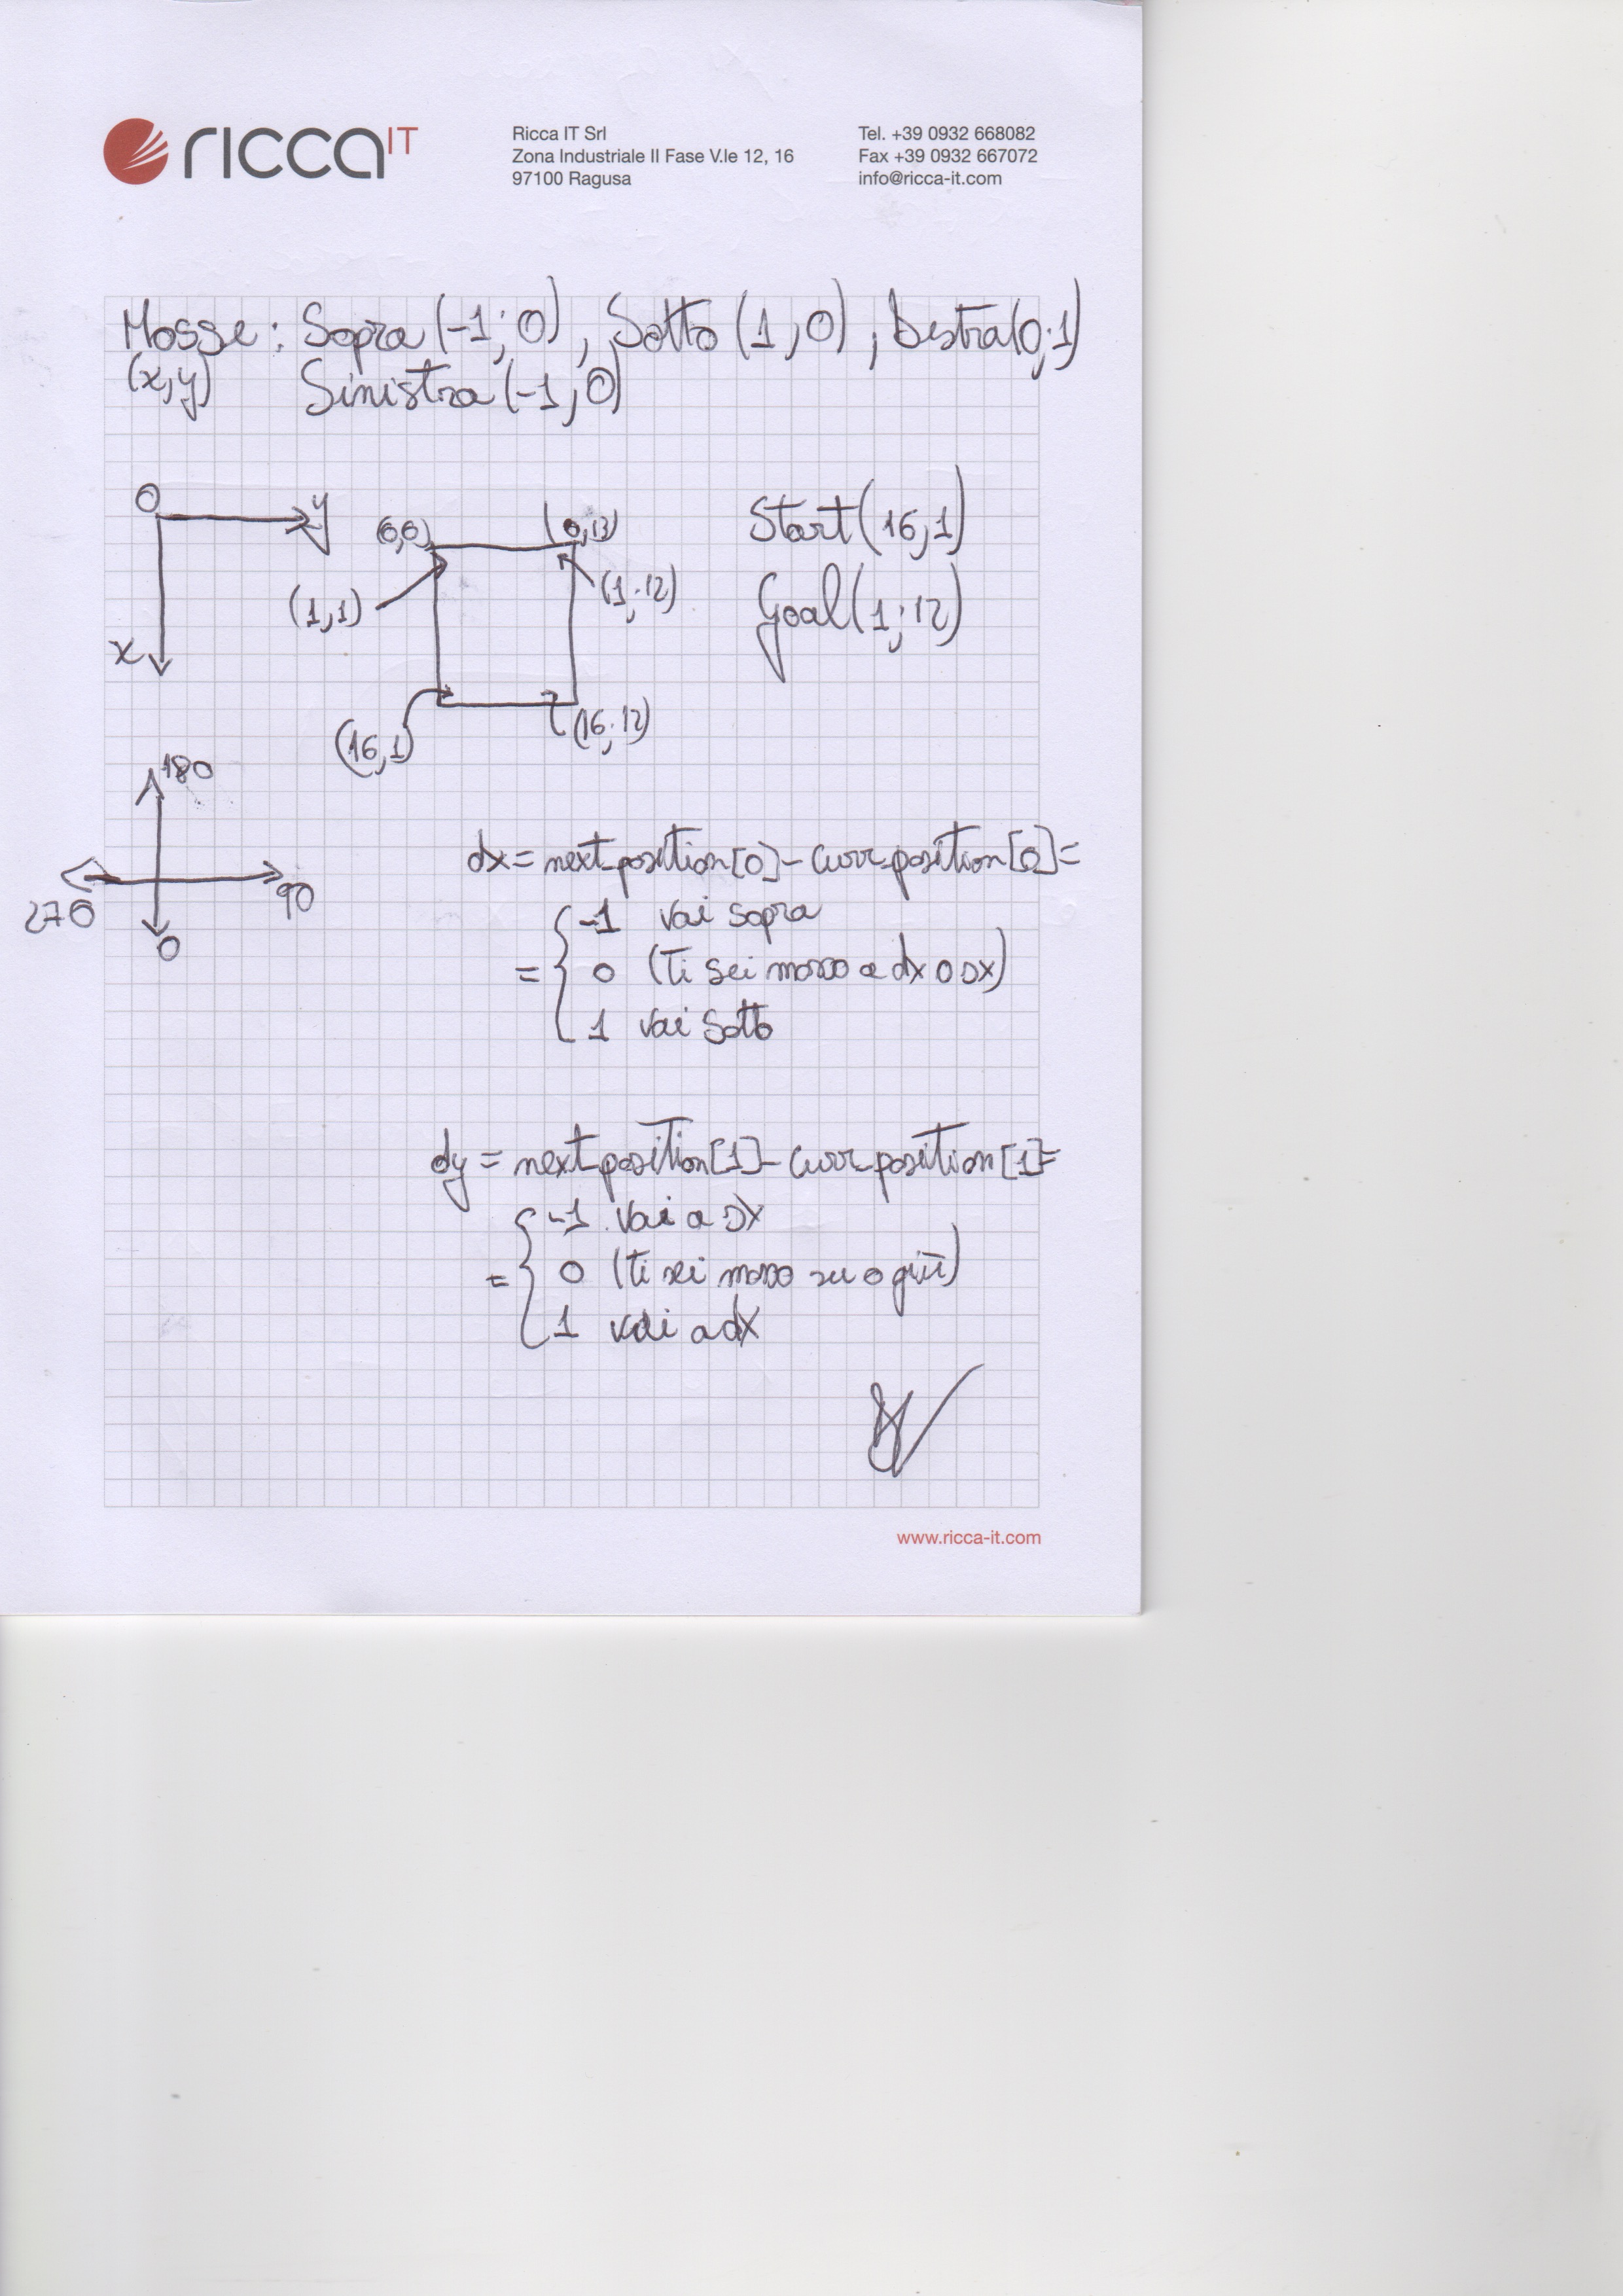 ricca IT
Ricca IT Srl
Zona Industriale II Fase V.le 12, 16
97100 Ragusa
Tel. +39 0932 668082
Fax +39 0932 667072
info@ricca-it.com
Mosse: Sopra (-1; 0), Sotto (1, 0), Destra (0; 1)
(x,y) Sinistra (-1, 0)
0 y
x
(0,0) (0,13)
(1,1) (1,12)
(16,1) (16,12)
Start (16,1)
Goal (1; 12)
180
270 90
0
dx = next_position[0] - curr_position[0] =
= { -1 vai sopra
0 (ti sei mosso a dx o sx)
1 vai sotto
dy = next_position[1] - curr_position[1] =
= { -1 vai a sx
0 (ti sei mosso su o giù)
1 vai a dx
www.ricca-it.com